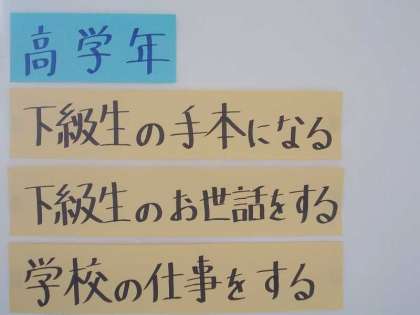 高学年
下級生の手本になる
下級生のお世話をする
学校の仕事をする